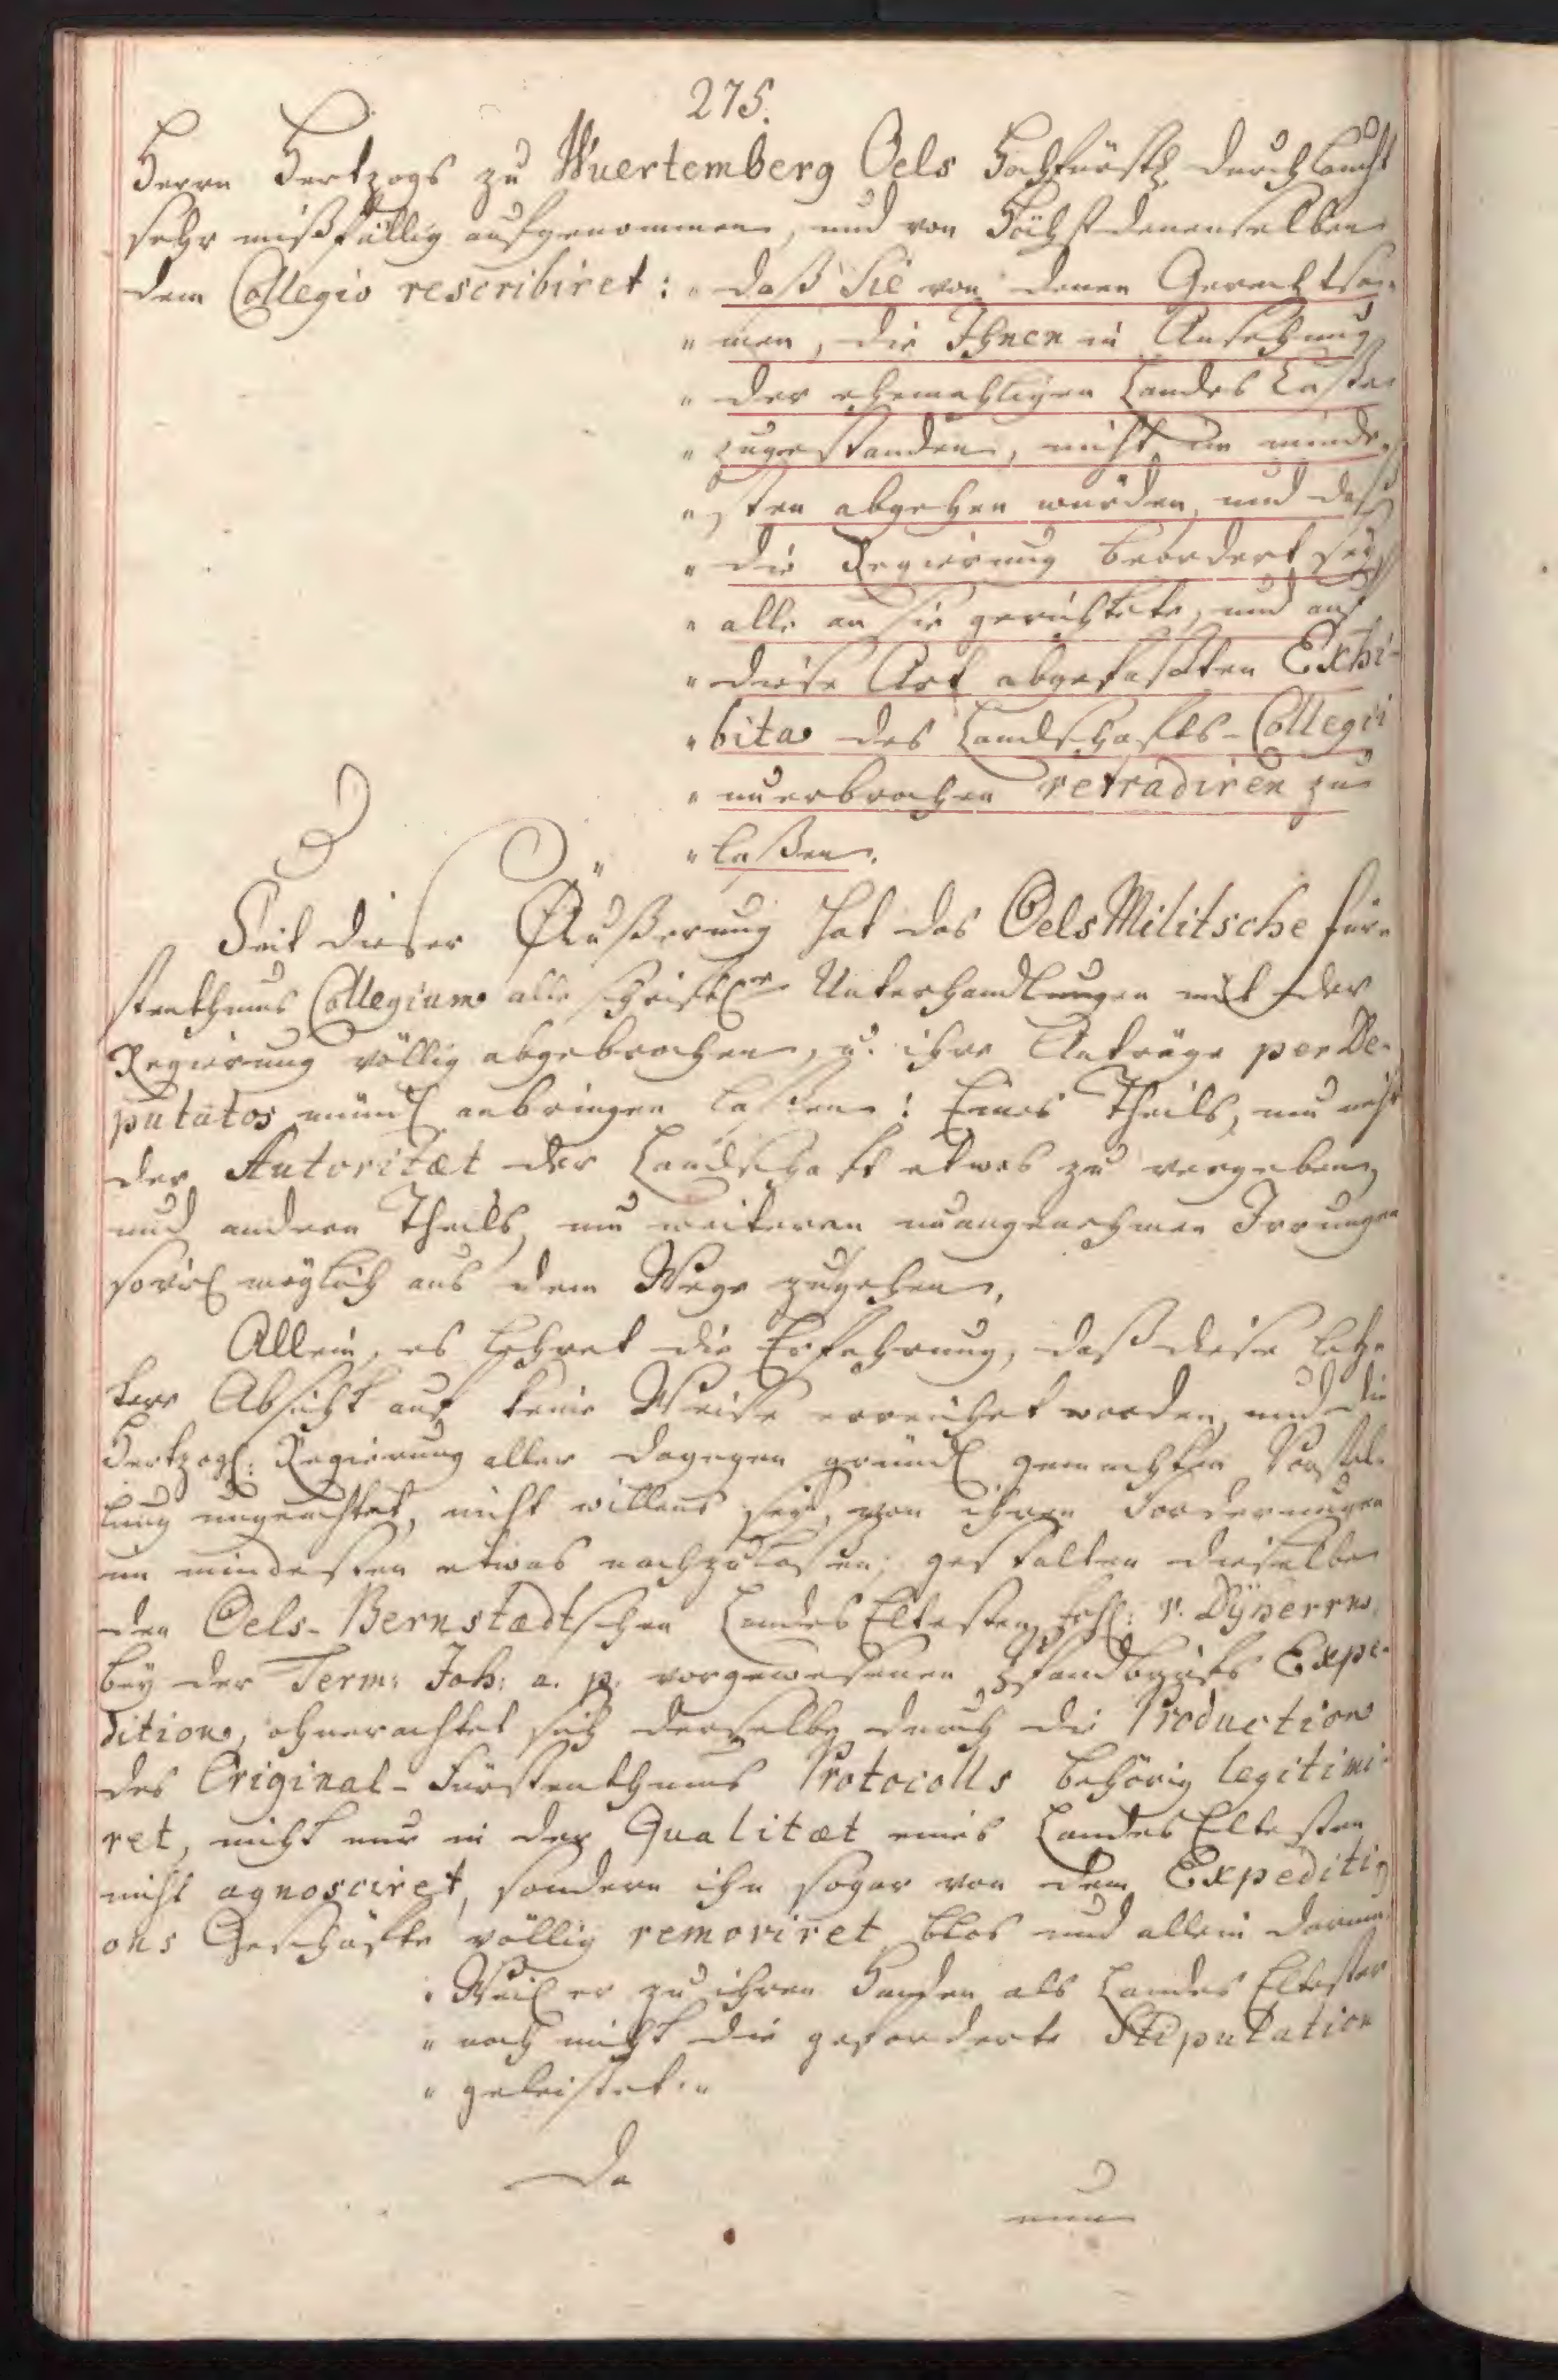 275.
Herrn Hertzogs zu Wuertemberg Oels Hochfürstl. Durchlaucht
sehr mißfällig aufgenommen, und von Höchstdenenselben
dem Collegio rescribiret: "daß Sie von denen Gerechtsa-
"men, die Ihnen in Ansehung
"der ehemahligen Landes Casse
"zugestanden, nicht im minde-
"sten abgehen würden, und daß
"die Regierung beordert sey,
"alle an sie gerichtete, und auf
"diese Art abgefaßten Exhi-
"bita des Landschafts-Collegii
"unerbrochen retradiren zu
"laßen."
Seit dieser Äußerung hat das Oels Militsche Für-
stenthums Collegium alle schriftl. Unterhandlungen mit der
Regierung völlig abgebrochen, u. ihre Anträge per De-
putatos mündl. anbringen laßen: Eines Theils, um nicht
der Autoritæt der Landschaft etwas zu vergeben,
und andern Theils, um weiteren unangenehmen Irrungen
soviel möglich aus dem Wege zugehen.
Allein, es lehret die Erfahrung, daß diese letz-
tere Absicht auf keine Weise erreichet worden, und die
Hertzogl: Regierung aller dagegen gründl. gemachten Vorstel-
lung ungeachtet, nicht willens sey, von ihren Forderungen
im mindesten etwas nachzulaßen; gestalten dieselbe
den Oels-Bernstædtschen Landes Eltesten, v. Dÿherrn,
bey der Term: Joh: a. p. vorgewesenen Pfandbriefs Expe-
dition, ohnerachtet sich derselbe durch die Production
des Original-Fürstenthums Protocolls behörig legitimi-
ret, nicht nur in der Qualitæt eines Landes Eltesten
nicht agnosciret, sondern ihn sogar von dem Expediti-
ons Geschäfte völlig removiret, blos und allein darum:
"Weil er zu ihren Handen als Landes Eltester
"noch nicht die geforderte Stipulation
"geleistet."
Da
nun